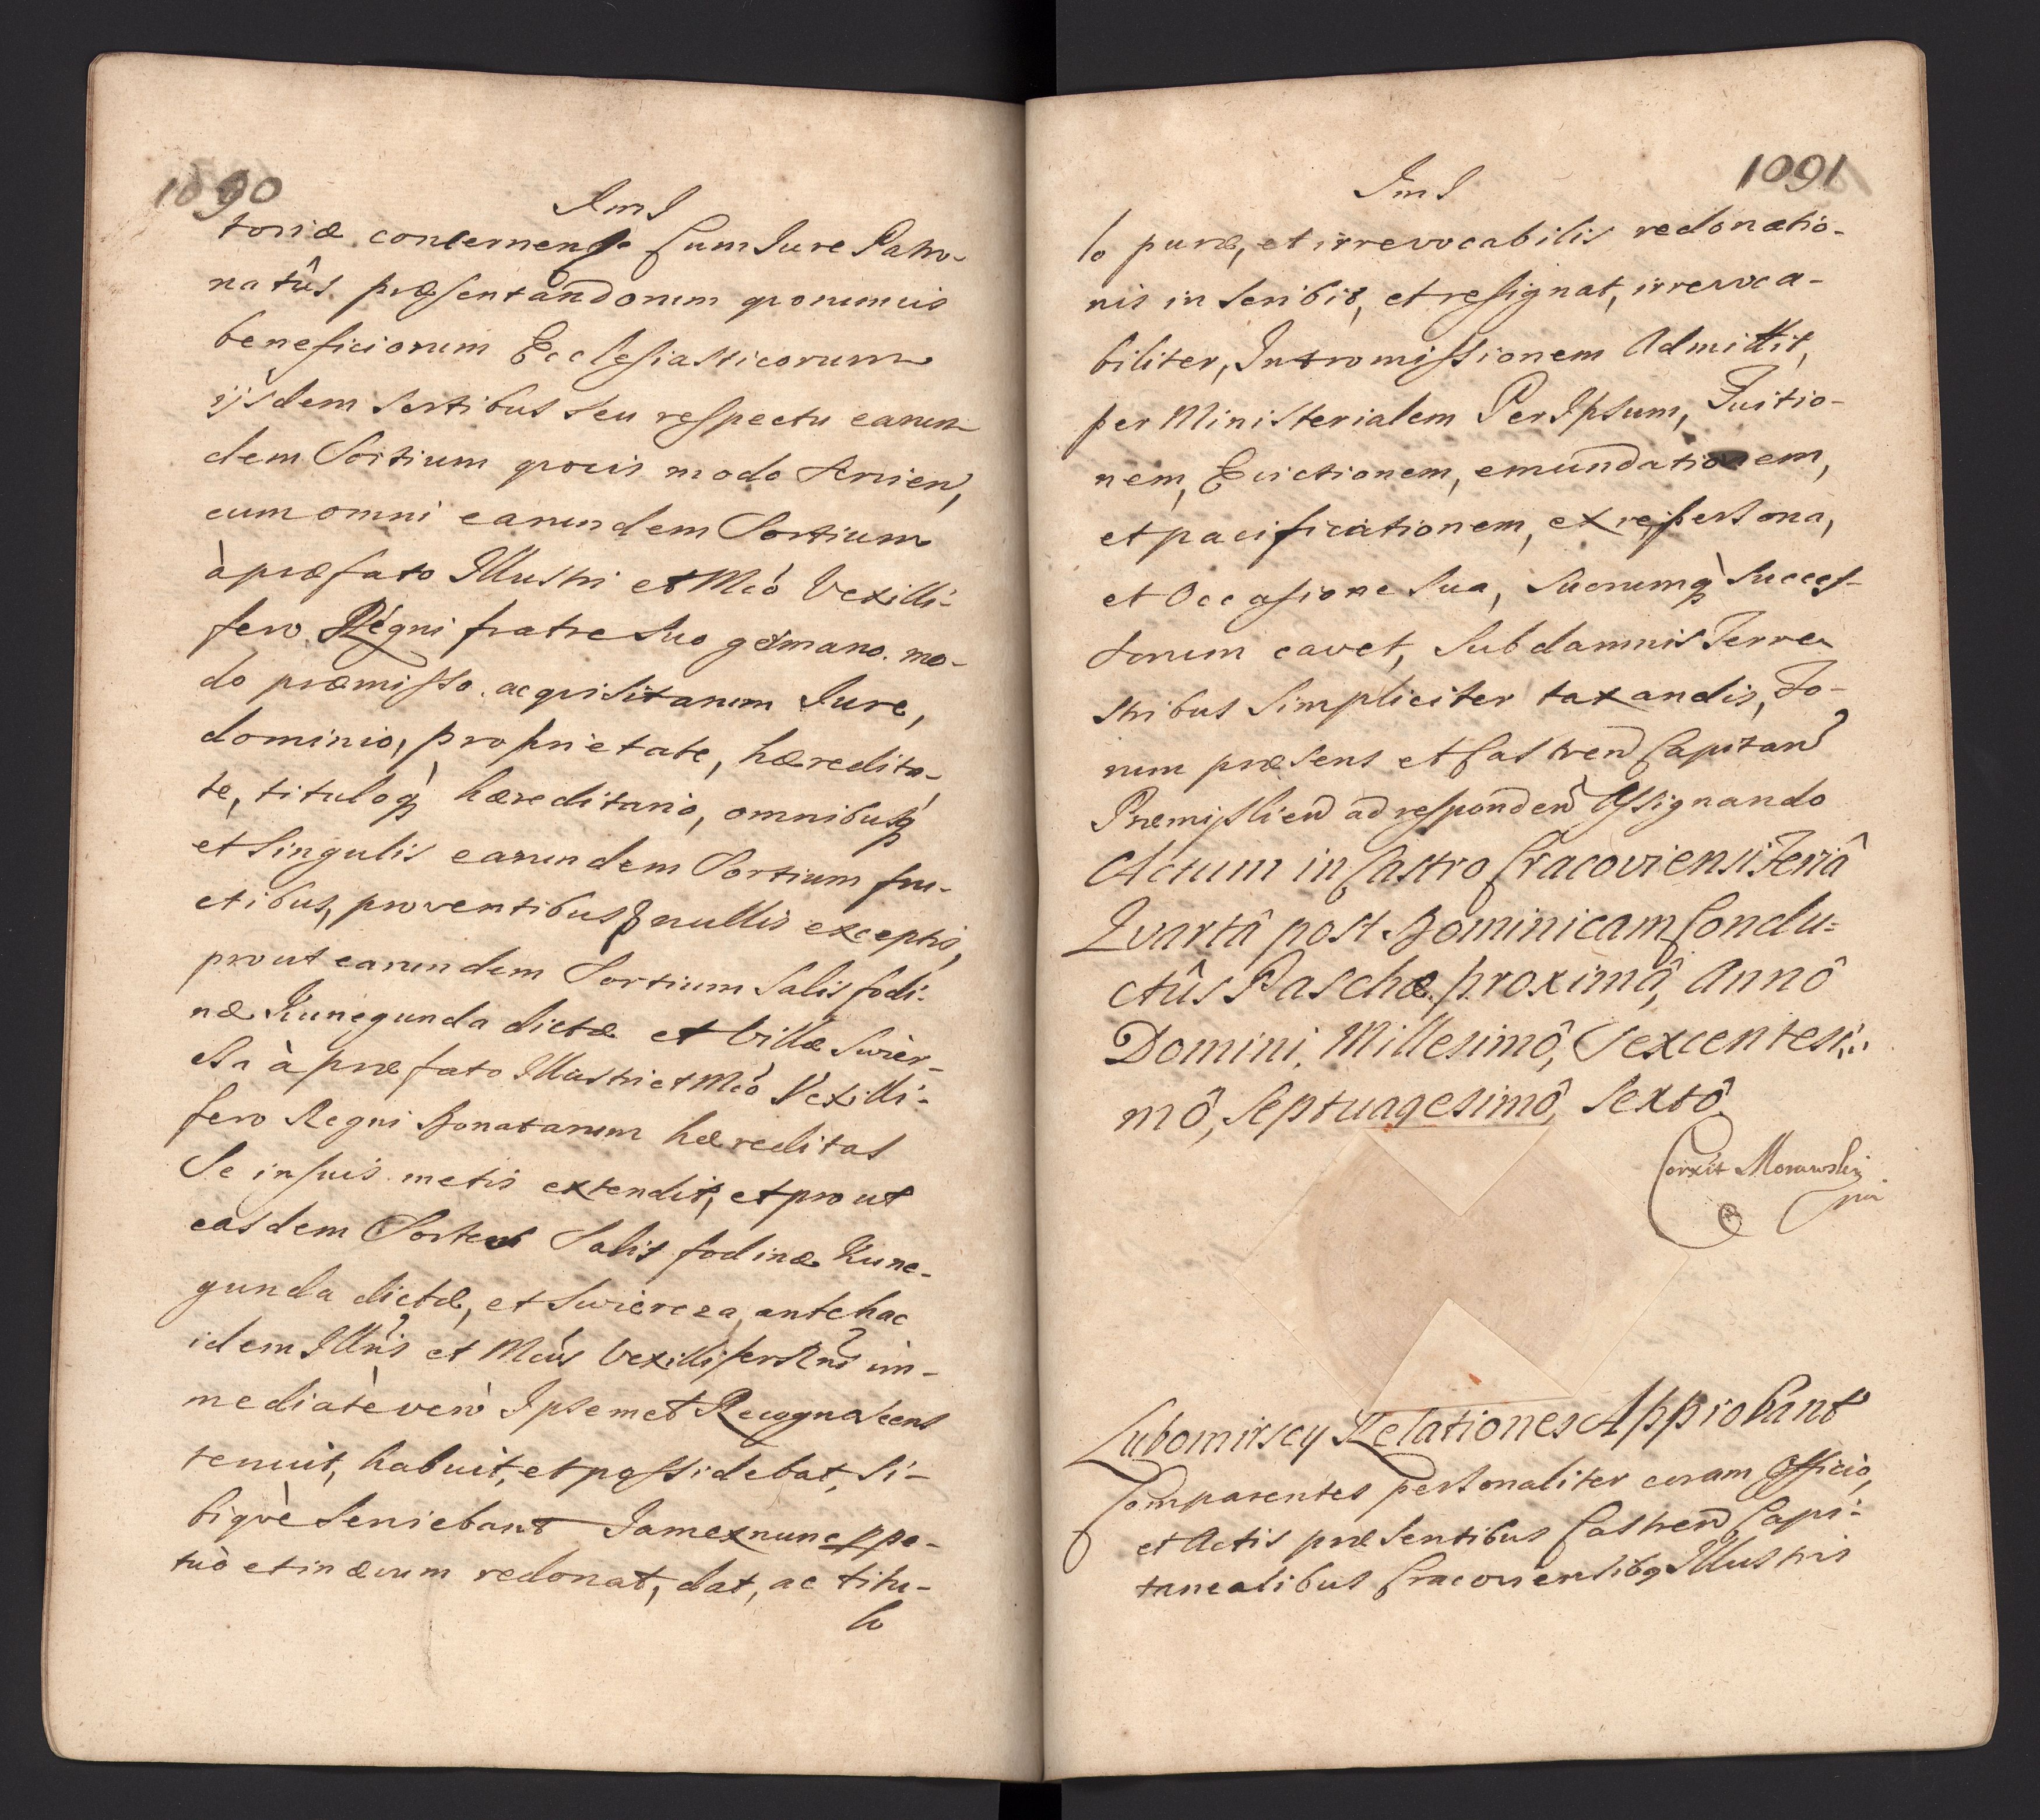 1090
ImI
toriæ concernen Cum Iure Patro-
natûs præsentandorum quorumvis
beneficiorum Ecclesiasticorum
ijsdem Sortibus seu respectu earun-
dem Sortium quovis modo servien,
cum omni earundem Sortium
à præfato Illustri et Mcó Vexilli-
fero Regni fratre suo germano mo-
do præmisso acquisitarum Iure,
dominio, proprietate, hæredita-
te, tituloq, hæreditario, omnibusq
et Singulis earundem Sortium fru-
ctibus, proventibus, nullis exceptis,
prout earundem Sortium Salis fodi-
næ Kunegunda dictæ et Villæ Swier-
à præfato Illustri et Mcó Vexilli-
fero Regni Donatarum hæreditas
Se in suis metis extendit, et prout
easdem Sortes Salis fodinæ Kune-
gunda dictæ, et Swiercza antehac
idem Illris et Mcús Vexillifer Rni im-
mediatè verò Ipsemet Recognoscens
tenuit, habuit, et possidebat, Si-
biquè Serviebant Iam ex nunc ppe-
tuò et in ævum redonat, dat, ac titu-
lo
1091
ImI
lo puræ, et irrevocabilis redonatio-
nis inscribit, et resignat, irrevoca-
biliter, Intromissionem Admittit,
per Ministerialem Per Ipsum, Tuitio-
nem, Evictionem, emundationem,
et pacificationem, ex re, persona,
et Occasione Sua, Suorumq Succes-
sorum cavet, Sub damnis Terre
stribus Simpliciter taxandis, Fo-
rum præsens et Castren Capitan
Præmislien ad responden Assignando
Actum in Castro Cracoviensi Feriâ
Qvartâ post Dominicam Condu=
ctûs Paschæ proximâ, Annô
Domini Millesimô, Sexcentesi
mô, Septuagesimô, Sextô
Corxit Morawski
Lubomirscy Relationes Approbant
Comparentes personaliter coram Officio,
et Actis præsentibus Castren Capi-
tanealibus Cracoviensibq Illustris